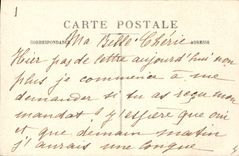 1
CARTE POSTALE
CORRESPONDANCE ADRESSE
Ma Belle Chérie
Hier pas de lettre aujourd'hui non
plus je commence a me
demander si tu as reçu mon
mandat j'espère que oui
et que demain matin
j'aurais une longue